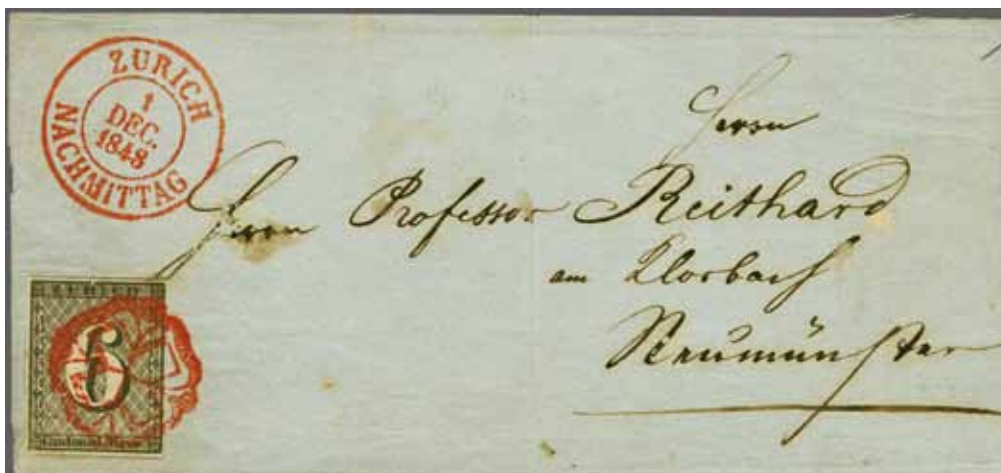 ZÜRICH
1
DEC.
1848
NACHMITTAG
Herrn
Herrn Professor Reithard
am
Neumünster
ZÜRICH
6
Cantonal-Taxe